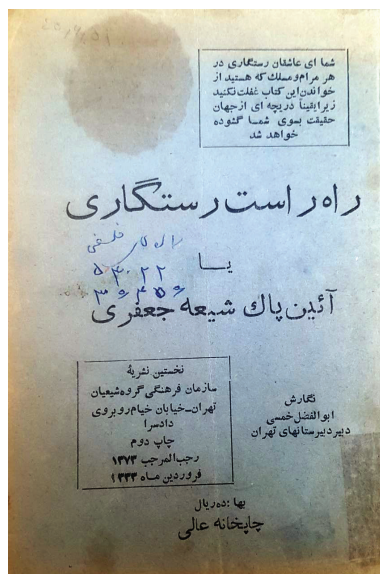 شما ای عاشقان رستگاری در
هر مرام و مسلک که هستید از
خواندن این کتاب غفلت نکنید
زیرا یقیناً دریچه ای از جهان
حقیقت بسوی شما گشوده
خواهد شد
راه راست رستگاری
یا
آئین پاك شیعه جعفری
نخستین نشریهٔ
سازمان فرهنگی گروه شیعیان
تهران-خیابان خیام روبروی
دادسرا
چاپ دوم
رجب المرجب ۱۳۷۳
فروردین ماه ۱۳۳۳
نگارش
ابوالفضل خمسی
دبیر دبیرستانهای تهران
بها: ده ریال
چاپخانه عالی